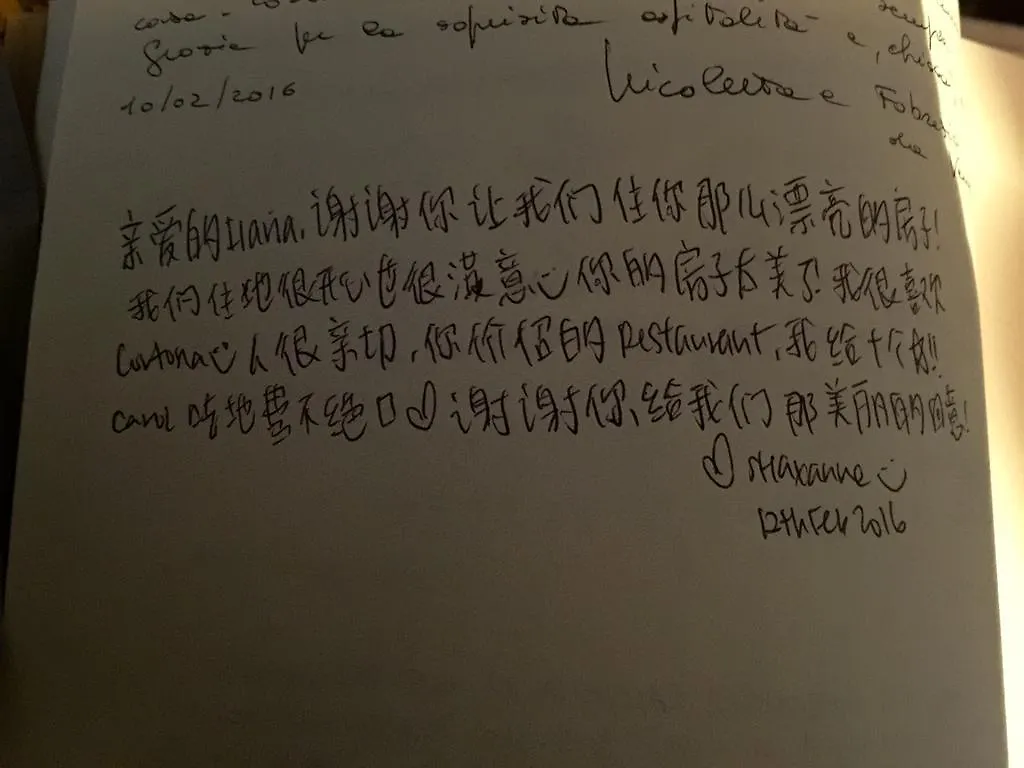 casa -
Grazie per la squisita ospitalità e, chissà
10/02/2016
Nicoletta e
亲爱的Ilaria,谢谢你让我们住你那么漂亮的房子!
我们住地很开心也很满意 你的房子太美了!我很喜欢
Cortona 人很亲切,你介绍的 Restaurant,我给十个力!!
Carol 吃地赞不绝口 谢谢你,给我们那美丽的回忆!
12th Feb 2016